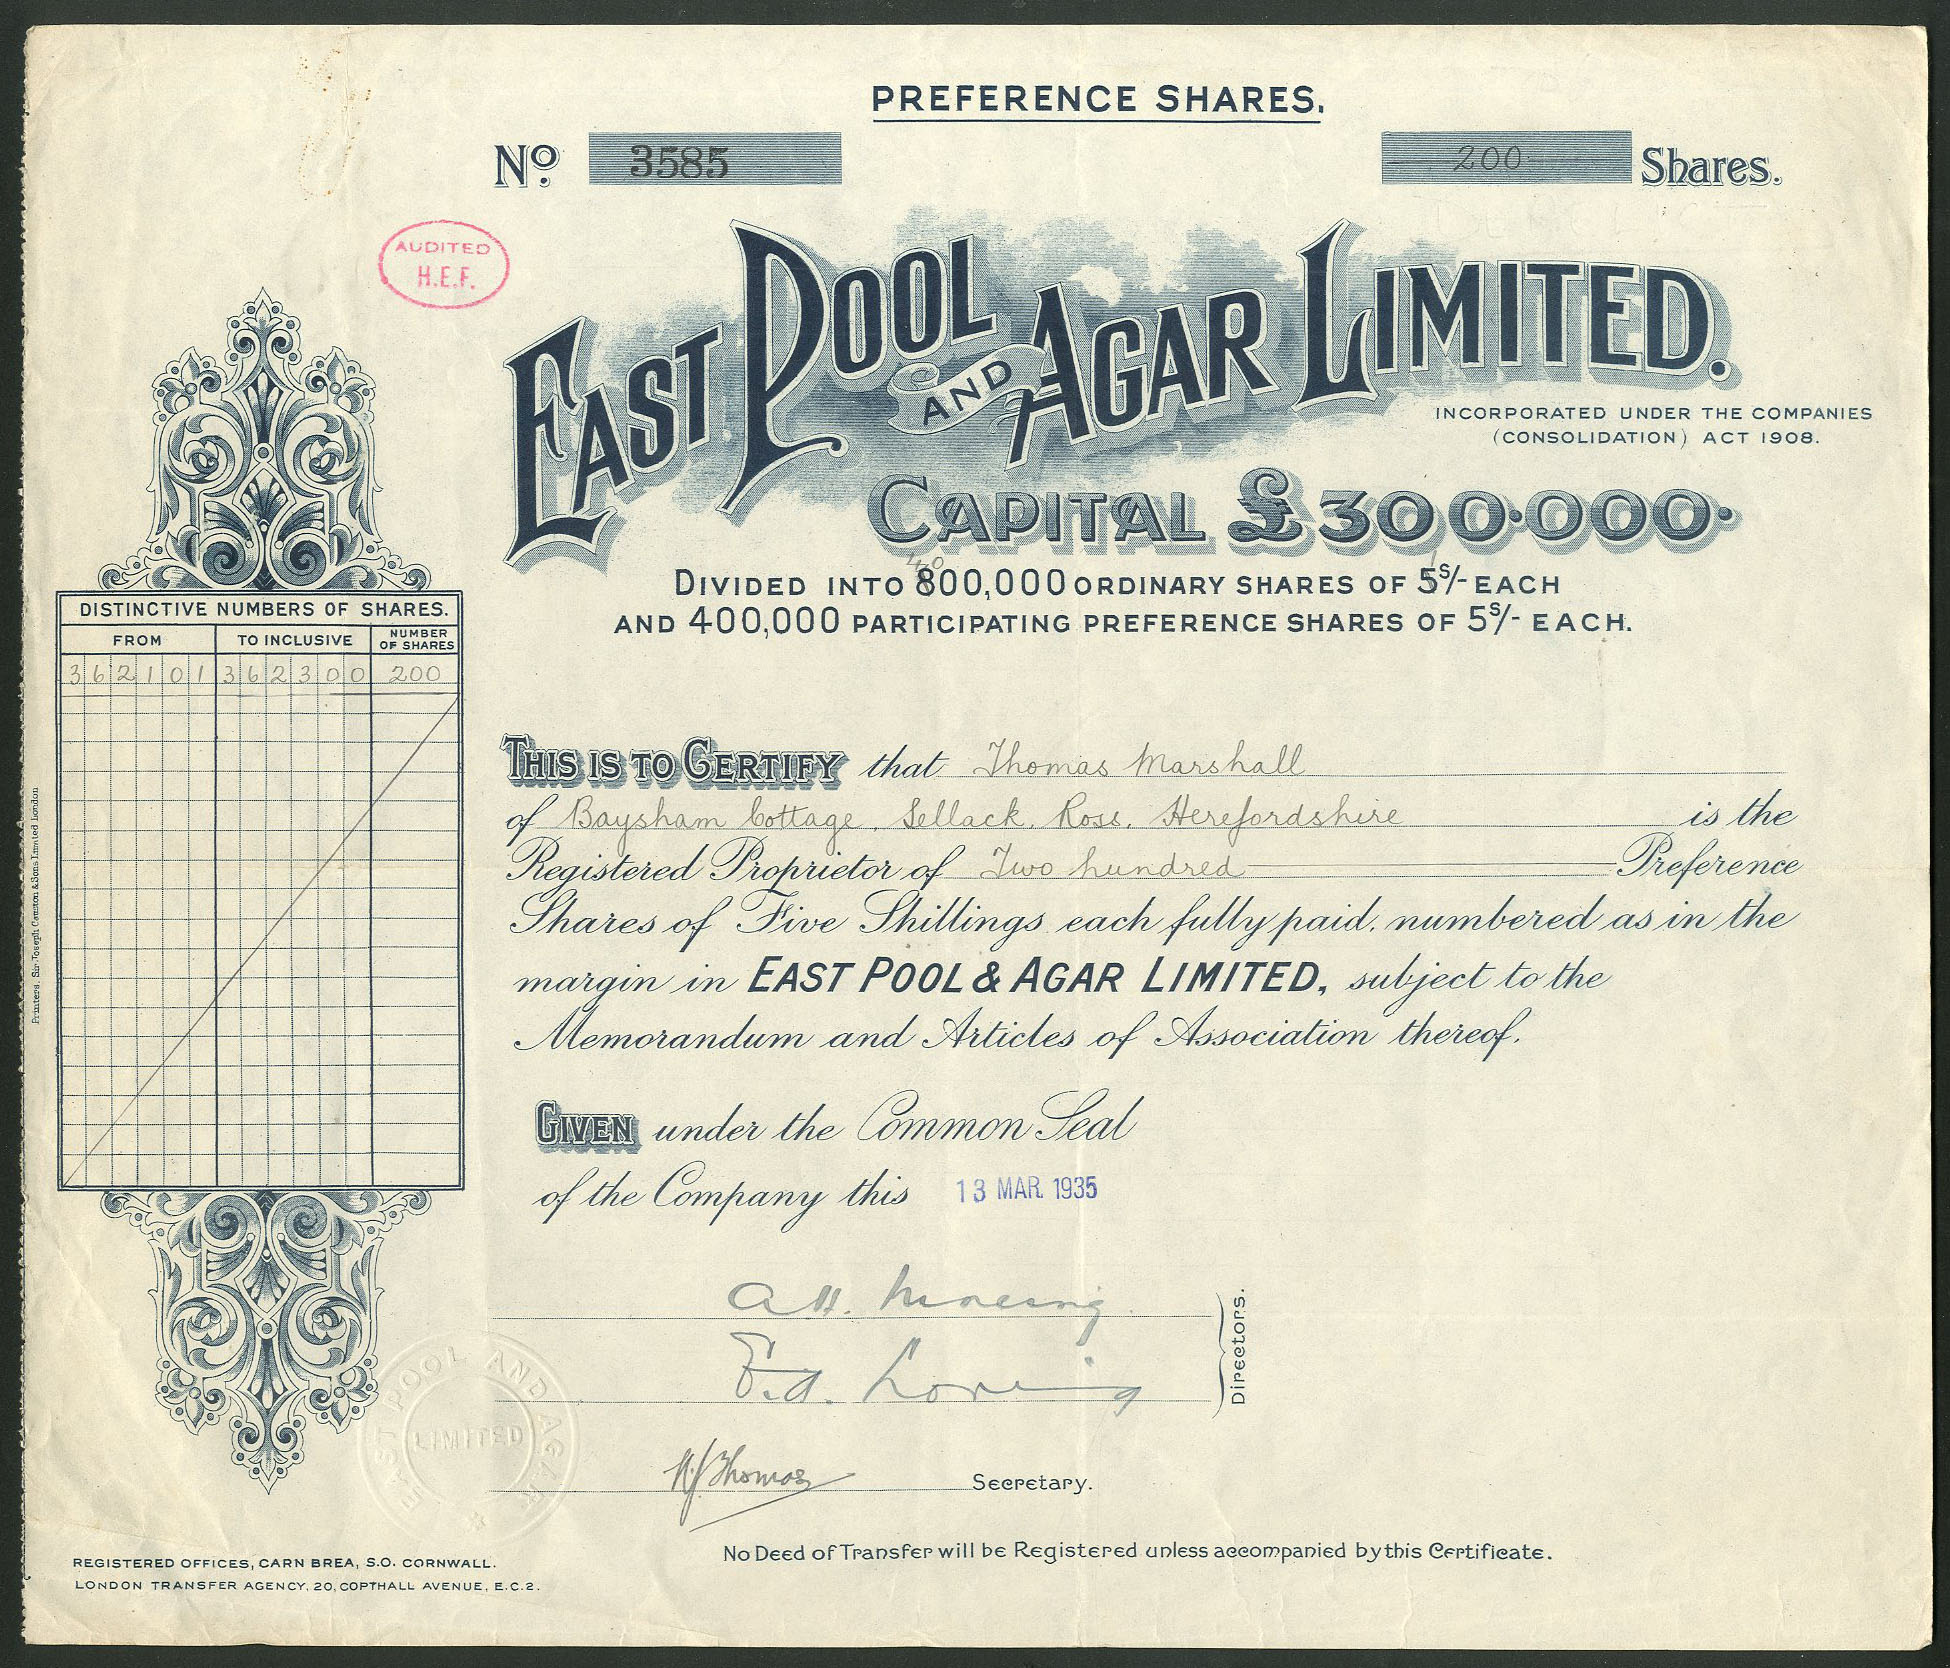 PREFERENCE SHARES.
No. 3585
200 Shares.
AUDITED
H.E.F.
EAST POOL AND AGAR LIMITED.
INCORPORATED UNDER THE COMPANIES
(CONSOLIDATION) ACT 1908.
CAPITAL £300,000.
DIVIDED INTO 800,000 ORDINARY SHARES OF 5S/- EACH
AND 400,000 PARTICIPATING PREFERENCE SHARES OF 5S/- EACH.
DISTINCTIVE NUMBERS OF SHARES.
FROM TO INCLUSIVE NUMBER OF SHARES
362101 362300 200
THIS IS TO CERTIFY that Thomas Marshall
of Baysham Cottage, Sellack, Ross, Herefordshire is the
Registered Proprietor of Two hundred Preference
Shares of Five Shillings each fully paid, numbered as in the
margin in EAST POOL & AGAR LIMITED, subject to the
Memorandum and Articles of Association thereof.
GIVEN under the Common Seal
of the Company this 13 MAR. 1935
A.H. Moreing
E.A. Loring
Directors.
Thomas
Secretary.
EAST POOL AND AGAR
LIMITED
No Deed of Transfer will be Registered unless accompanied by this Certificate.
REGISTERED OFFICES, CARN BREA, S.O. CORNWALL.
LONDON TRANSFER AGENCY, 20, COPTHALL AVENUE, E.C.2.
Printers, Sir Joseph Causton & Sons Limited London